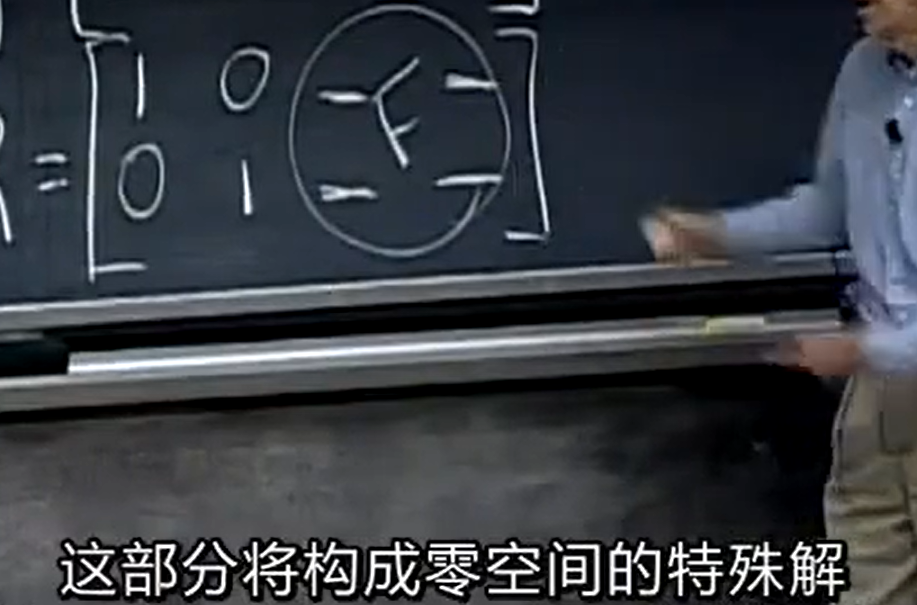 1 0 F
= 0 1
这部分将构成零空间的特殊解